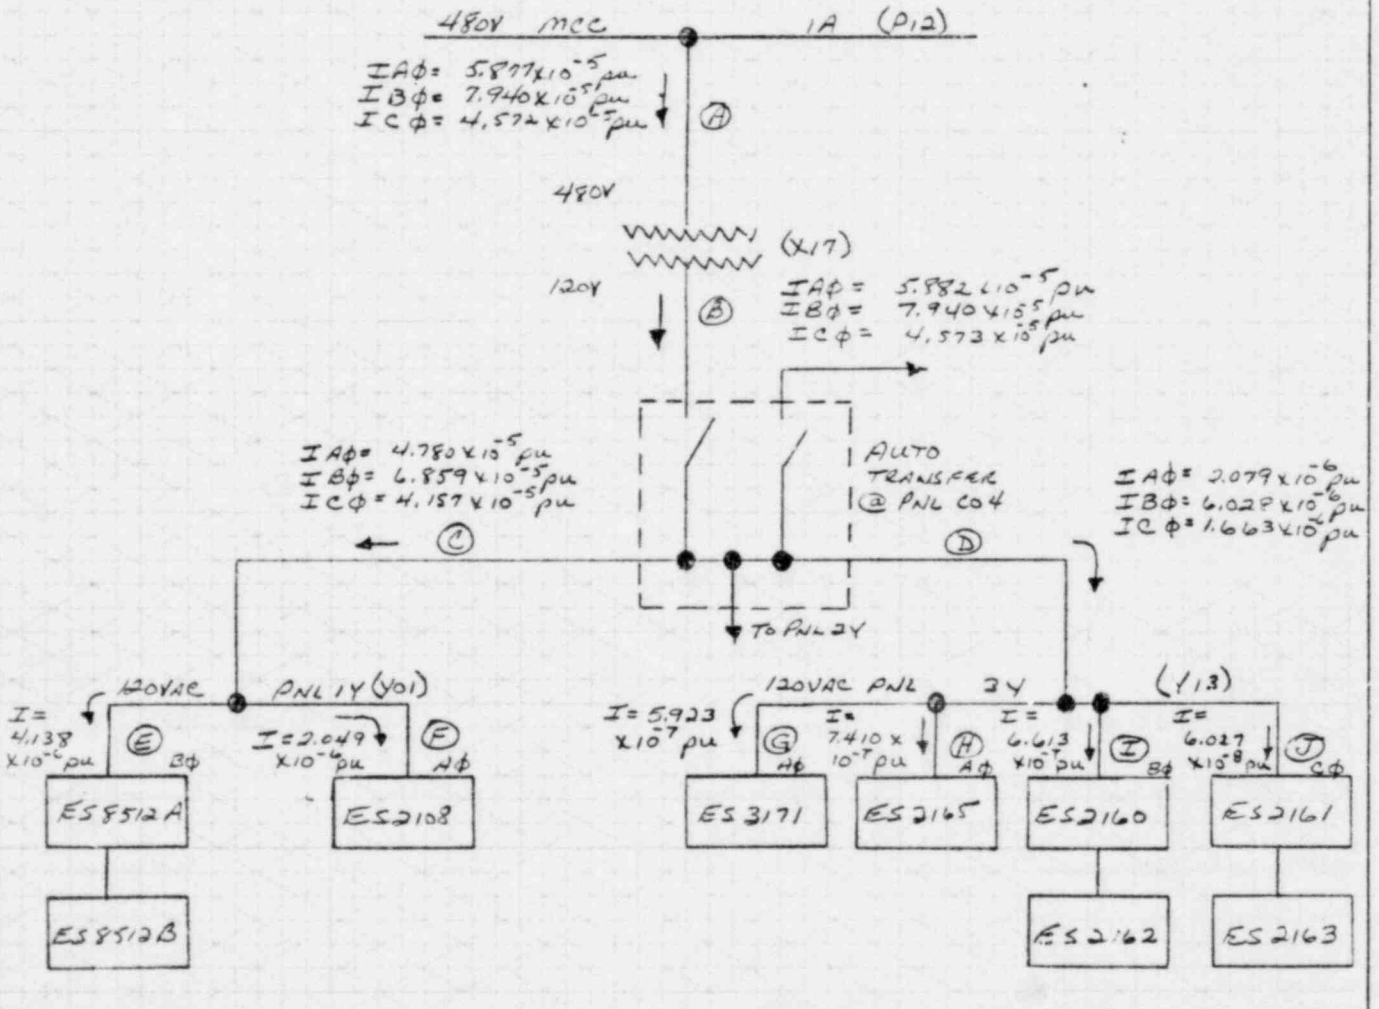 480V MCC 1A (P12)
IAΦ= 5.877x10⁻⁵ pu
IBΦ= 7.940x10⁻⁵ pu
ICΦ= 4.572x10⁻⁵ pu
A
480V
(X17)
120V
B
IAΦ= 5.882x10⁻⁵ pu
IBΦ= 7.940x10⁻⁵ pu
ICΦ= 4.573x10⁻⁵ pu
IAΦ= 4.780x10⁻⁵ pu
IBΦ= 6.859x10⁻⁵ pu
ICΦ= 4.157x10⁻⁵ pu
AUTO
TRANSFER
@ PNL C04
IAΦ= 2.079x10⁻⁶ pu
IBΦ= 6.028x10⁻⁶ pu
ICΦ= 1.663x10⁻⁶ pu
C
D
TO PNL 2Y
120VAC PNL 1Y (Y01)
120VAC PNL 3Y (Y13)
I=
4.138
x10⁻⁶ pu
E
BΦ
I=2.049
x10⁻⁶ pu
F
AΦ
I= 5.923
x10⁻⁷ pu
G
AΦ
I=
7.410x
10⁻⁷ pu
H
AΦ
I=
6.613
x10⁻⁷ pu
I
BΦ
I=
6.027
x10⁻⁸ pu
J
CΦ
ES8512A
ES2108
ES3171
ES2165
ES2160
ES2161
ES8512B
ES2162
ES2163